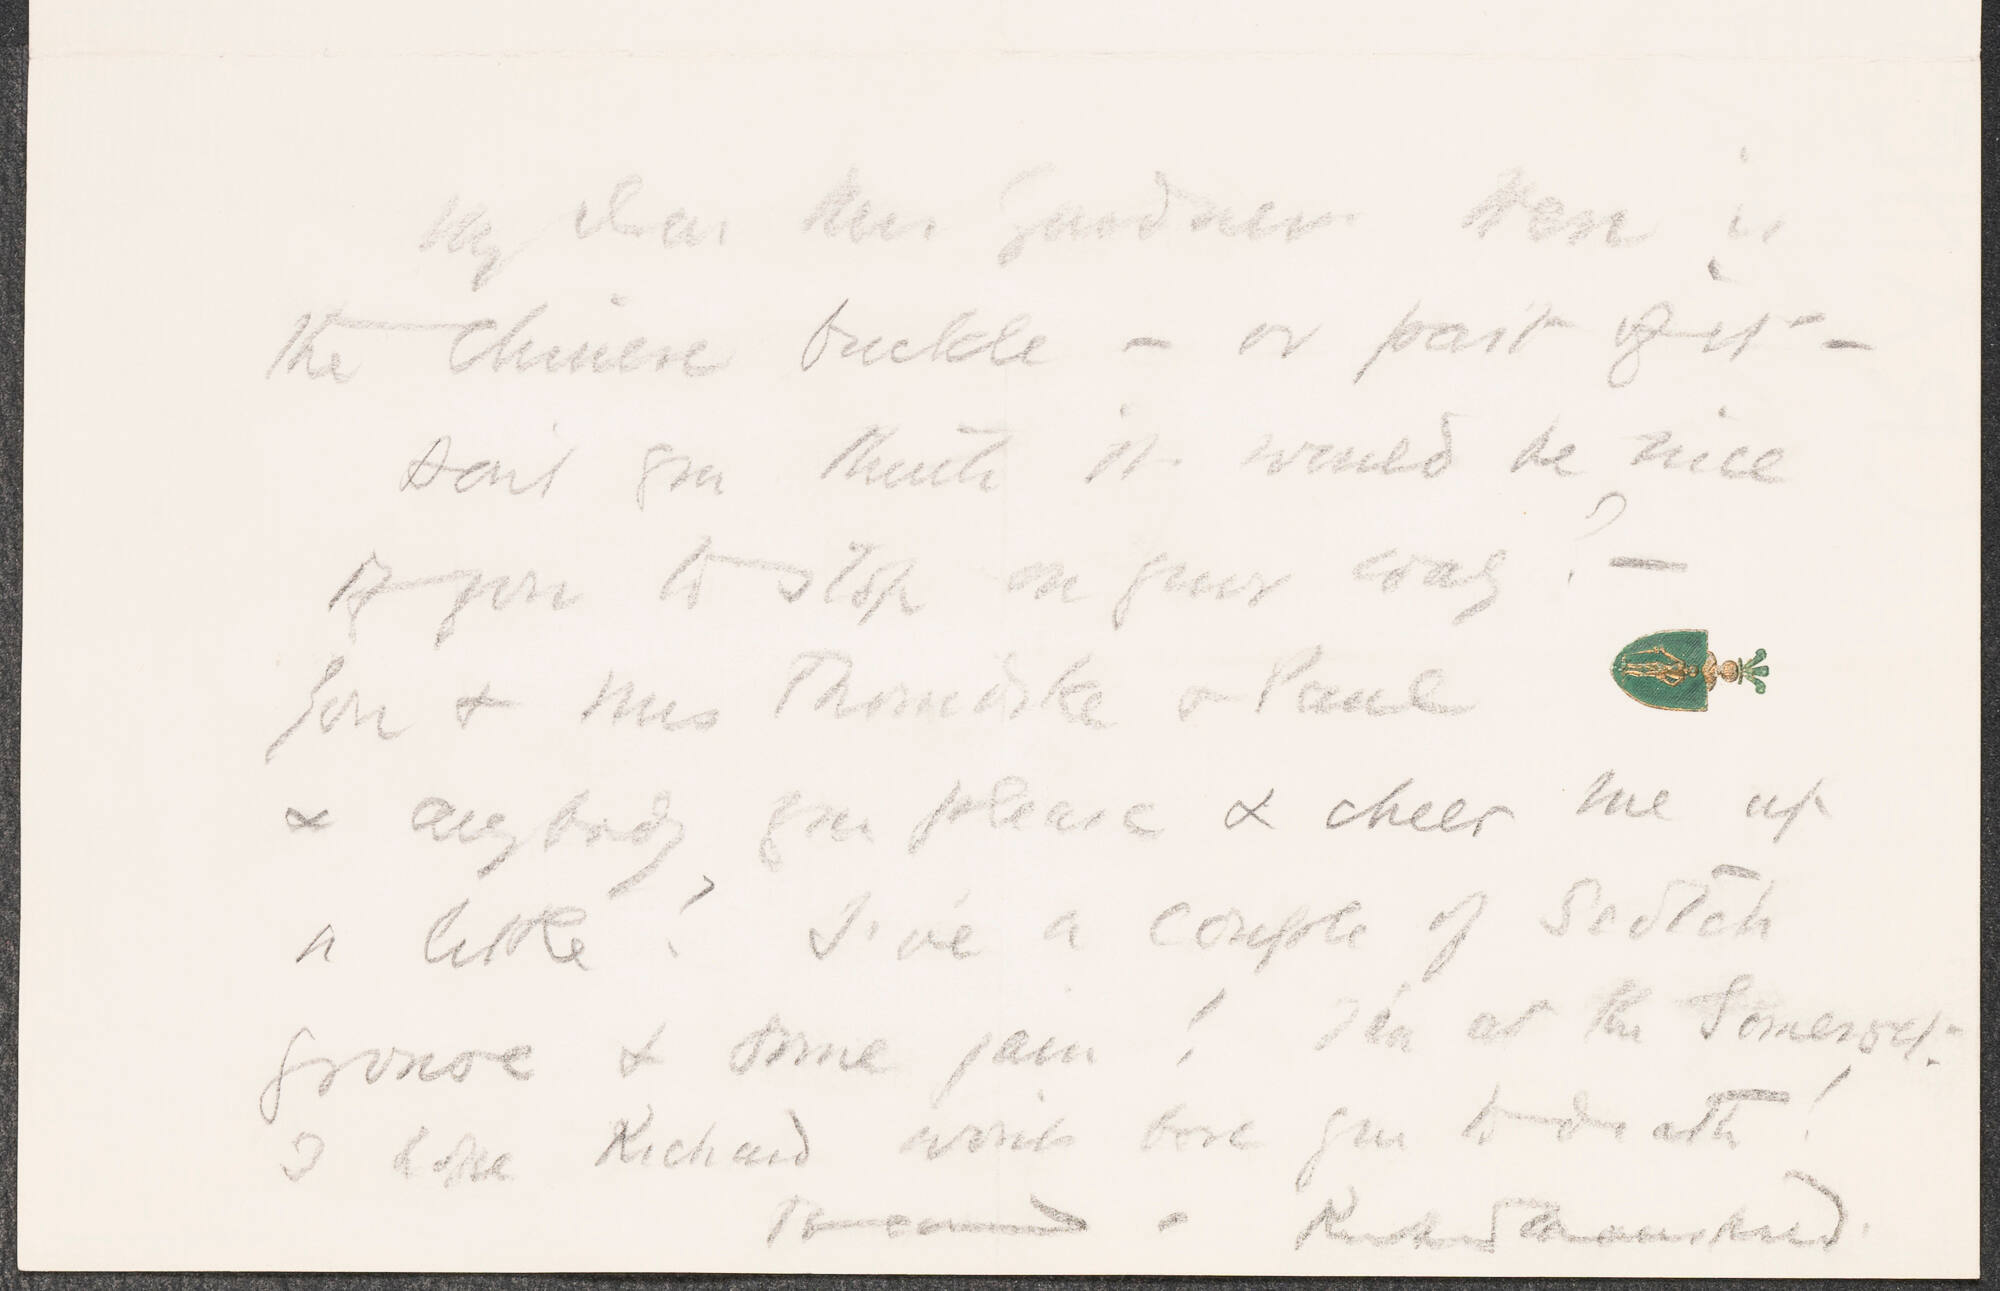 My dear Mrs Gardner Here is
the Chinese buckle - or part of it -
Don't you think it would be nice
of you to stop on your way? -
You & Mrs Thorndike & Paul
& anybody you please & cheer me up
a little? I've a couple of Scotch
grouse & some jam! I'm at the Somerset.
I hope Richard won't bore you to death!